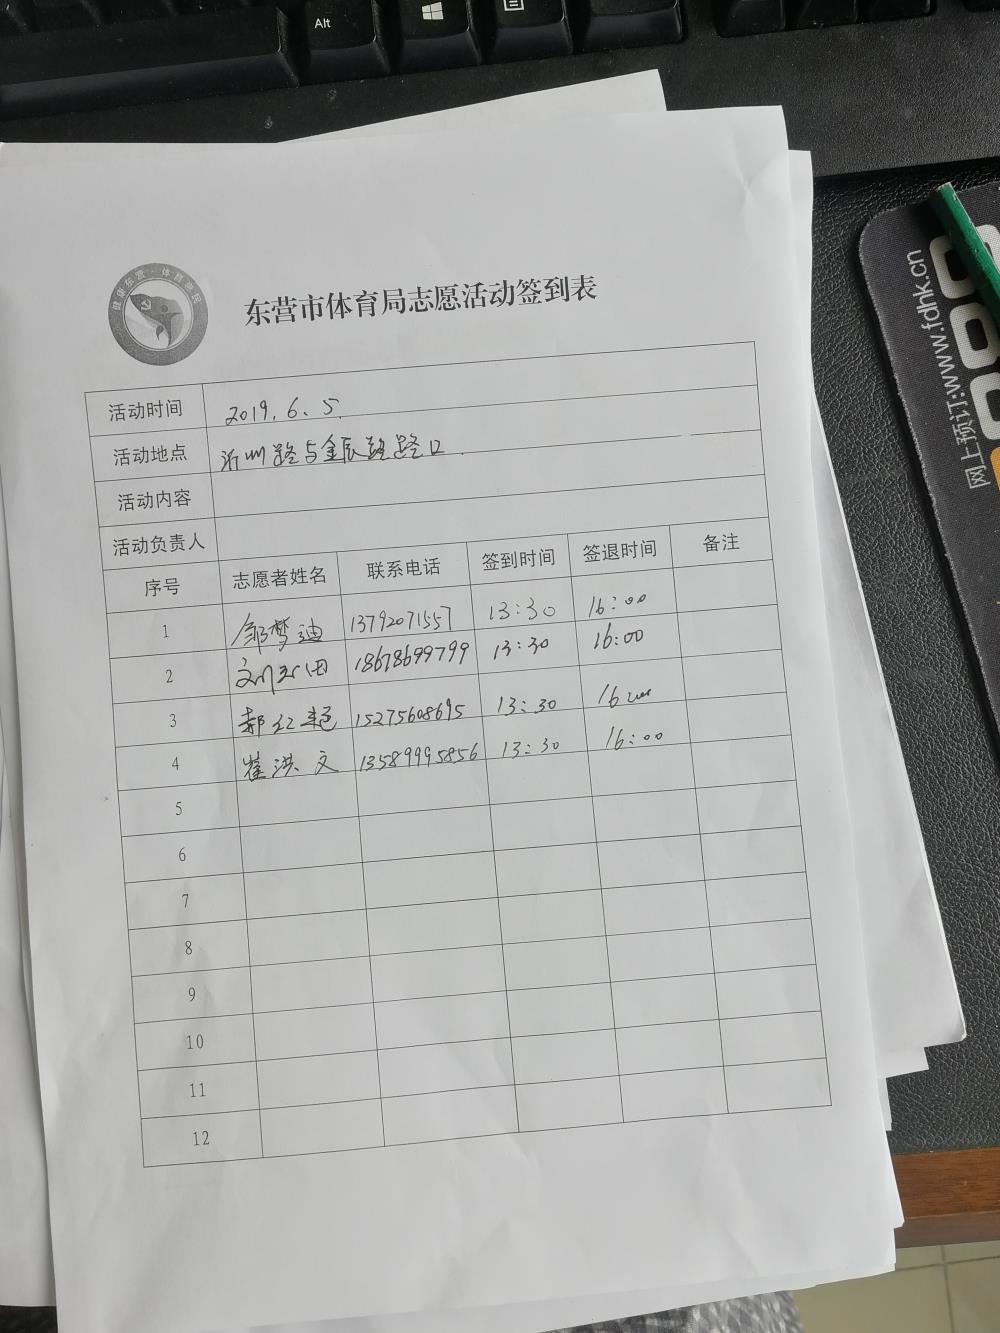 Alt
健康东营·体育惠民
东营市体育局志愿活动签到表
活动时间 2019.6.5.
活动地点 沂州路与金辰路路口.
活动内容
活动负责人
序号 志愿者姓名 联系电话 签到时间 签退时间 备注
1 邹梦迪 13792071557 13:30 16:00
2 18678699799 13:30 16:00
3 郝红艳 15275608695 13:30 16:00
4 崔洪文 13589995856 13:30 16:00
5
6
7
8
9
10
11
12
网上预订:www.fdhk.cn